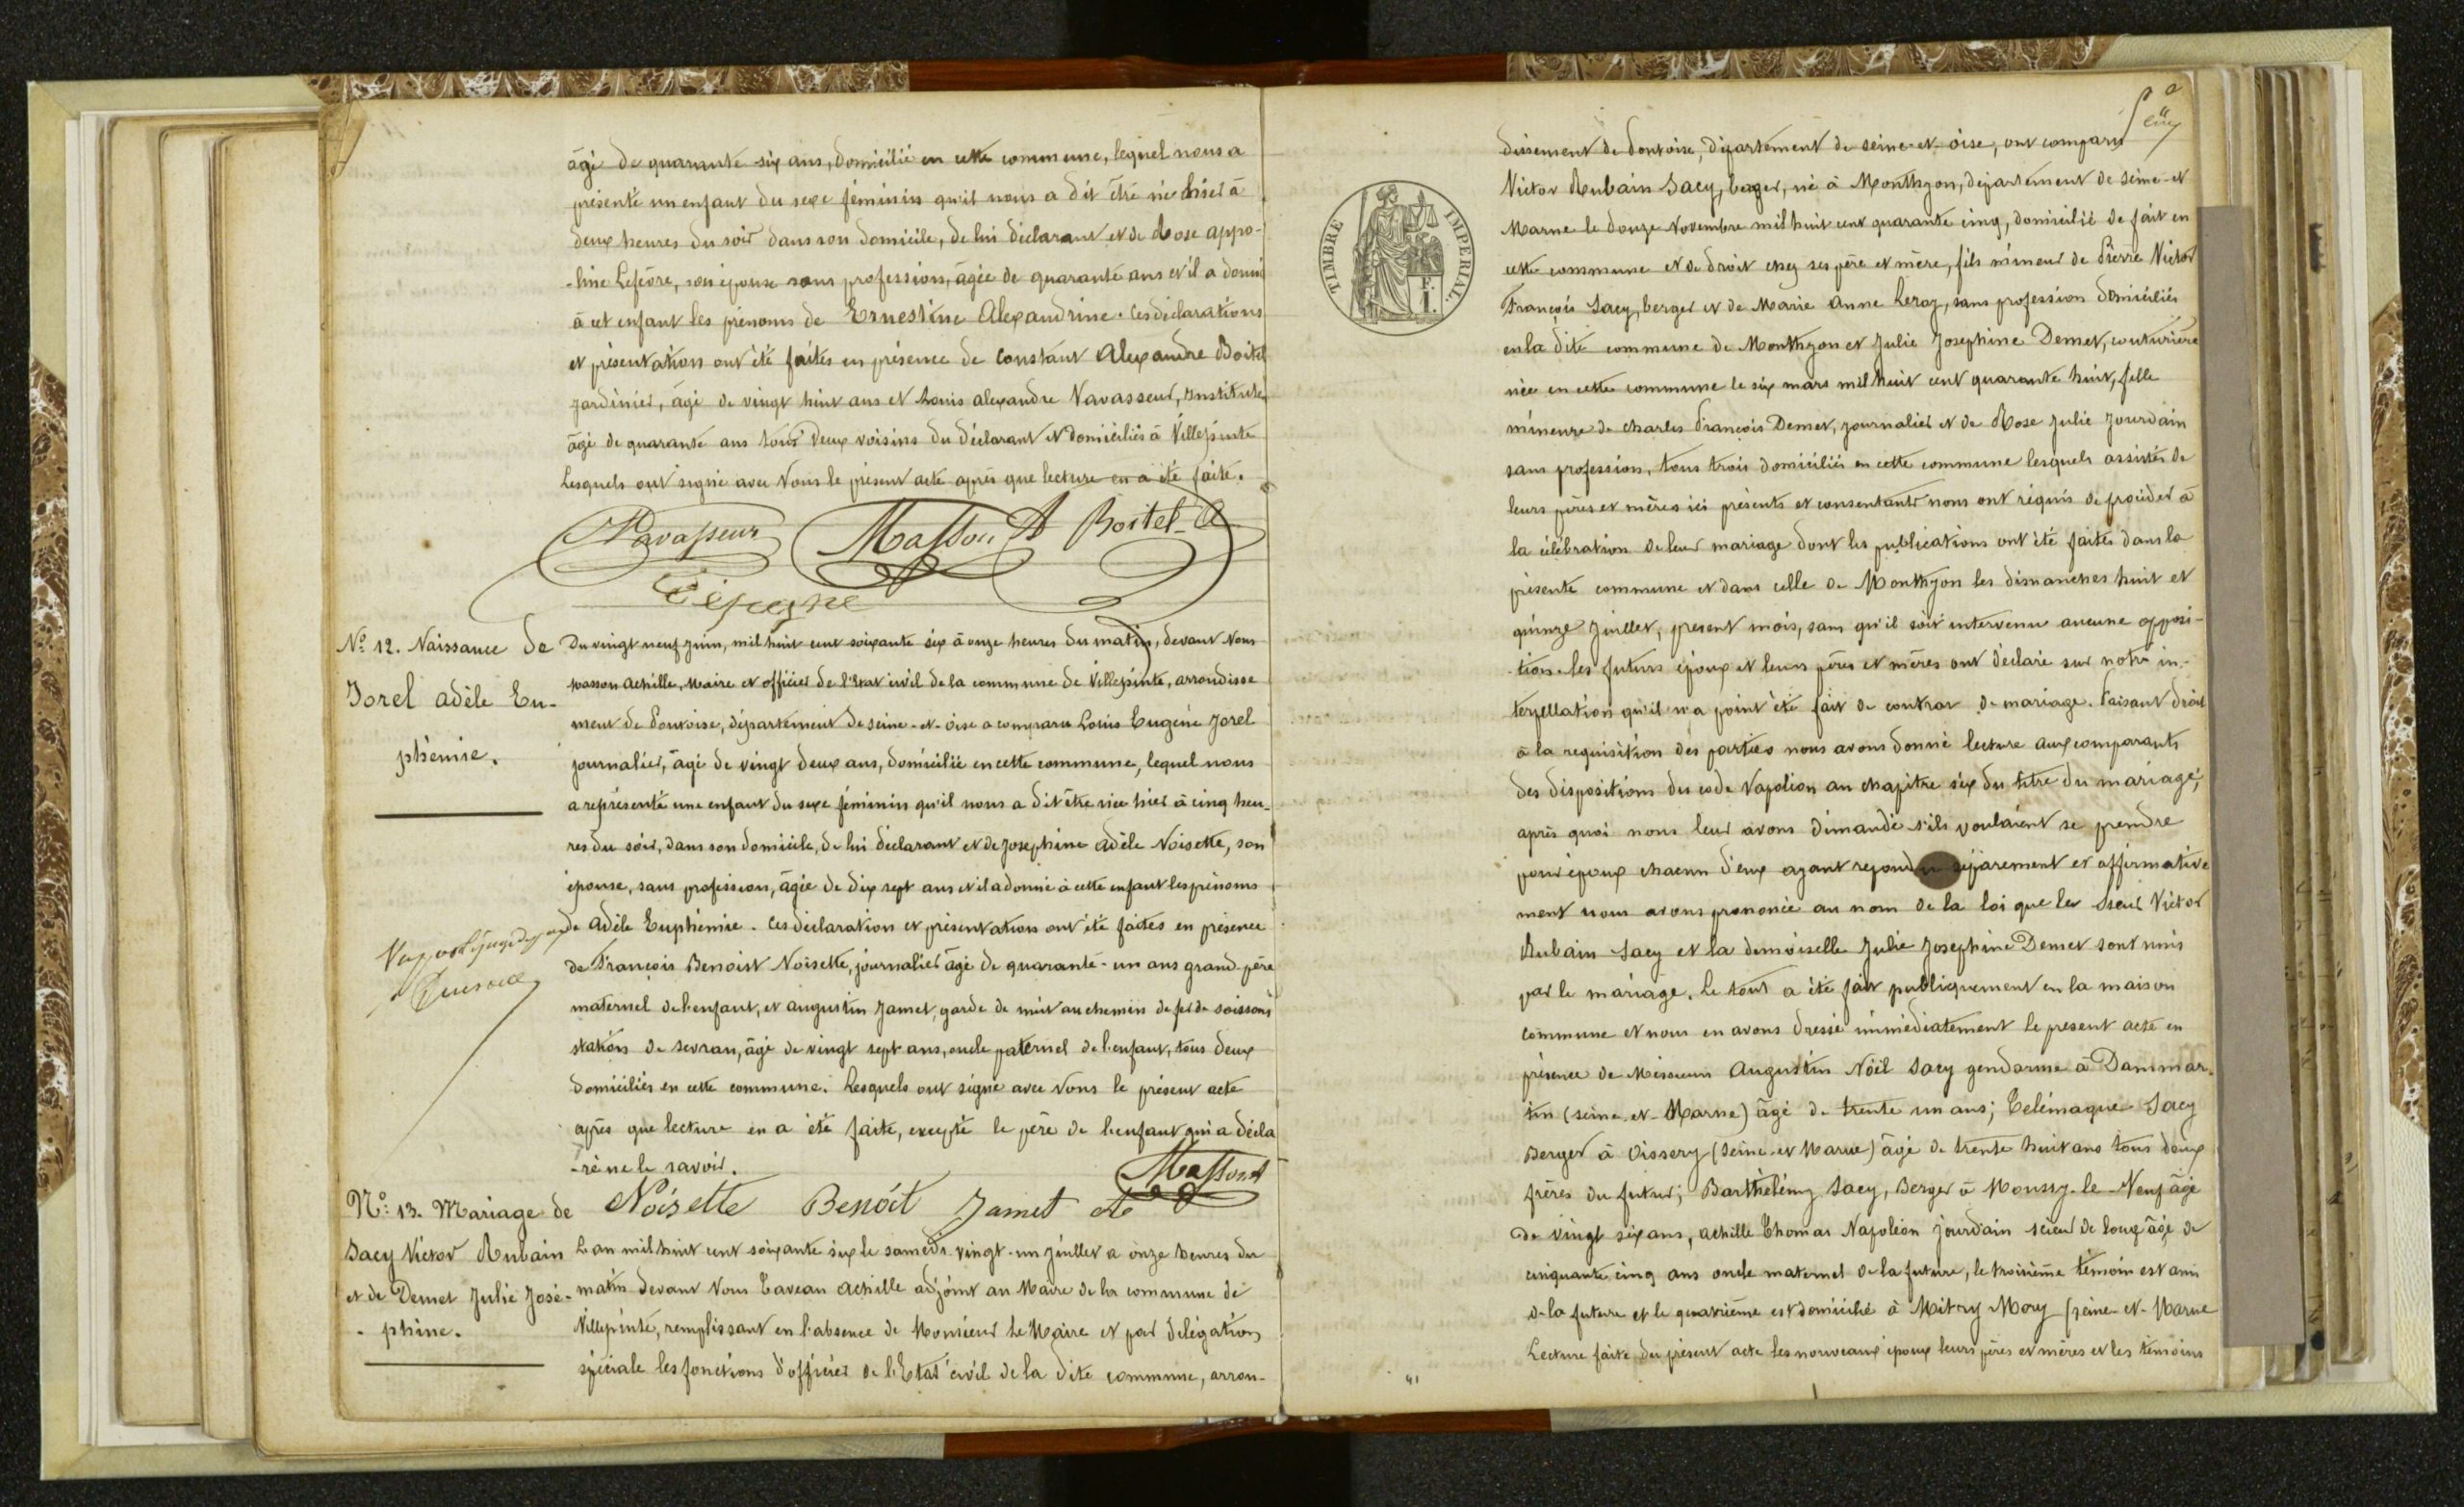 âgé de quarante six ans, domicilié en cette commune, lequel nous a
présenté un enfant du sexe féminin qu'il nous a dit être né hier à
deux heures du soir dans son domicile, de lui déclarant et de Rose appo-
-line Lefèvre, son épouse sans profession, âgée de quarante ans et il a donné
à cet enfant les prénoms de Ernestine Alexandrine. Ces déclarations
et présentation ont été faites en présence de Constant Alexandre Boitel
jardinier, âgé de vingt huit ans et Louis alexandre Vavasseur, Instituteur
âgé de quarante ans tous deux voisins du déclarant et domiciliés à Villepinte
Lesquels ont signé avec Nous le présent acte après que lecture en a été faite.
Vavasseur Masson A Boitel
N° 12. Naissance de
Jorel adèle Eu-
phémie.
Du vingt neuf juin, mil huit cent soixante six à onze heures du matin, devant Nous
Masson Achille, Maire et officier de l'Etat civil de la commune de Villepinte, arrondisse
ment de Pontoise, département de seine-et-oise a comparu Louis Eugène Jorel
journalier, âgé de vingt deux ans, domicilié en cette commune, lequel nous
a représenté une enfant du sexe féminin qu'il nous a dit être née hier à cinq heu-
res du soir, dans son domicile, de lui déclarant et de Josephine adèle Noisette, son
épouse, sans profession, âgée de dix sept ans et il a donné à cette enfant les prénoms
de adèle Euphémie. Ces déclaration et présentation ont été faites en présence
de François Benoist Noisette, journalier âgé de quarante-un ans grand-père
maternel de l'enfant, et augustin Jamet, garde de nuit au chemin de fer de soissons
station de sevran, âgé de vingt sept ans, oncle paternel de l'enfant, tous deux
domiciliés en cette commune. Lesquels ont signé avec Nous le présent acte
après que lecture en a été faite, excepté le père de l'enfant qui a décla
-ré ne le savoir.
Masson A
Noisette Benoit Jamet
N° 13. Mariage de
Sacy Victor Rubain
et de Demet Julie José-
-phine.
L'an mil huit cent soixante six le samedi vingt-un juillet a onze heures du
matin devant Nous Taveau Achille adjoint au Maire de la commune de
Villepinte, remplissant en l'absence de Monsieur le Maire et par délégation
spéciale les fonctions d'officier de l'Etat civil de la dite commune, arron-
TIMBRE IMPERIAL
dissement de Pontoise, département de seine-et-oise, ont comparu
Victor Rubain Sacy, berger, né à Monthyon, département de seine-et
Marne le douze Novembre mil huit cent quarante cinq, domicilié de fait en
cette commune et de droit chez ses père et mère, fils mineur de Pierre Victor
François Sacy, berger et de Marie Anne Leroy, sans profession domiciliés
en la dite commune de Monthyon et Julie Josephine Demet, couturière
née en cette commune le six mars mil huit cent quarante huit, fille
mineure de Charles François Demet, journalier et de Rose Julie Jourdain
sans profession, tous trois domiciliés en cette commune lesquels assistés de
leurs pères et mères ici présents et consentants nous ont réquis de procéder à
la célébration de leur mariage dont les publications ont été faites dans la
présente commune et dans celle de Monthyon les dimanches huit et
quinze Juillet, présent mois, sans qu'il soit intervenu aucune opposi-
-tion. les futurs époux et leurs pères et mères ont déclaré sur notre in-
terpellation qu'il n'a point été fait de contrat de mariage. Faisant droit
à la requisition des parties nous avons donné lecture aux comparants
des dispositions du code Napoléon au chapitre six du titre du mariage,
après quoi nous leur avons démandé s'ils voulaient se prendre
pour époux chacun d'eux ayant repondu séparement et affirmative
ment nous avons prononcé au nom de la loi que le Sieur Victor
Rubain Sacy et la demoiselle Julie Josephine Demet sont unis
par le mariage. Le tout a été fait publiquement en la maison
commune et nous en avons dressé immédiatement le présent acte en
présence de Messieurs Augustin Noël Sacy gendarme à Dammar-
tin (seine-et-Marne) âgé de trente un ans; Télémaque Sacy
Berger à Oissery (Seine-et-Marne) âgé de trente huit ans tous deux
frères du futur; Barthélémy Sacy, Berger à Moussy-le-Neuf âgé
de vingt six ans, achille Thomas Napoléon Jourdain scieur de long âgé de
cinquante cinq ans oncle maternel de la future, le troisième témoin est ami
de la future et le quatrième est domicilié à Mitry Mory (seine-et-Marne
Lecture faite du présent acte les nouveaux époux leurs pères et mères et les témoins